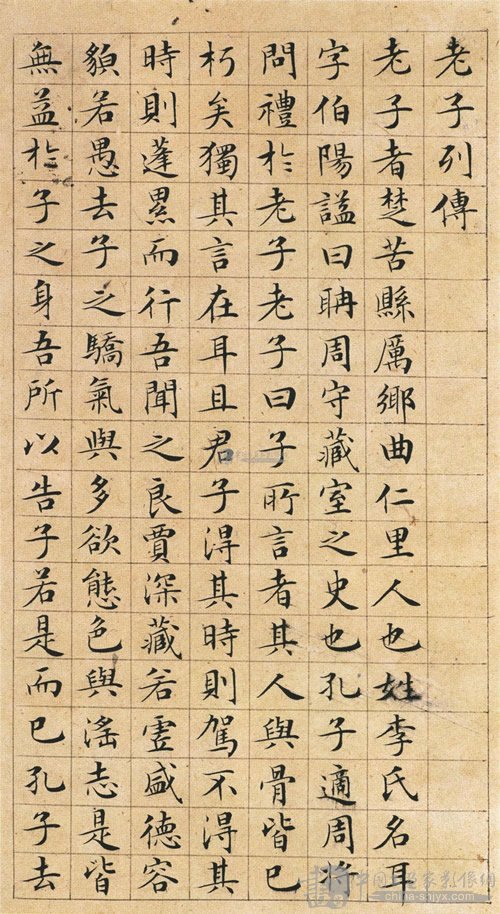 老子列傳
老子者楚苦縣厲鄉曲仁里人也姓李氏名耳
字伯陽謚曰聃周守藏室之史也孔子適周將
問禮於老子老子曰子所言者其人與骨皆已
朽矣獨其言在耳且君子得其時則駕不得其
時則蓬累而行吾聞之良賈深藏若虛盛德容
貌若愚去子之驕氣與多欲態色與淫志是皆
無益於子之身吾所以告子若是而已孔子去
china-shjyx.com